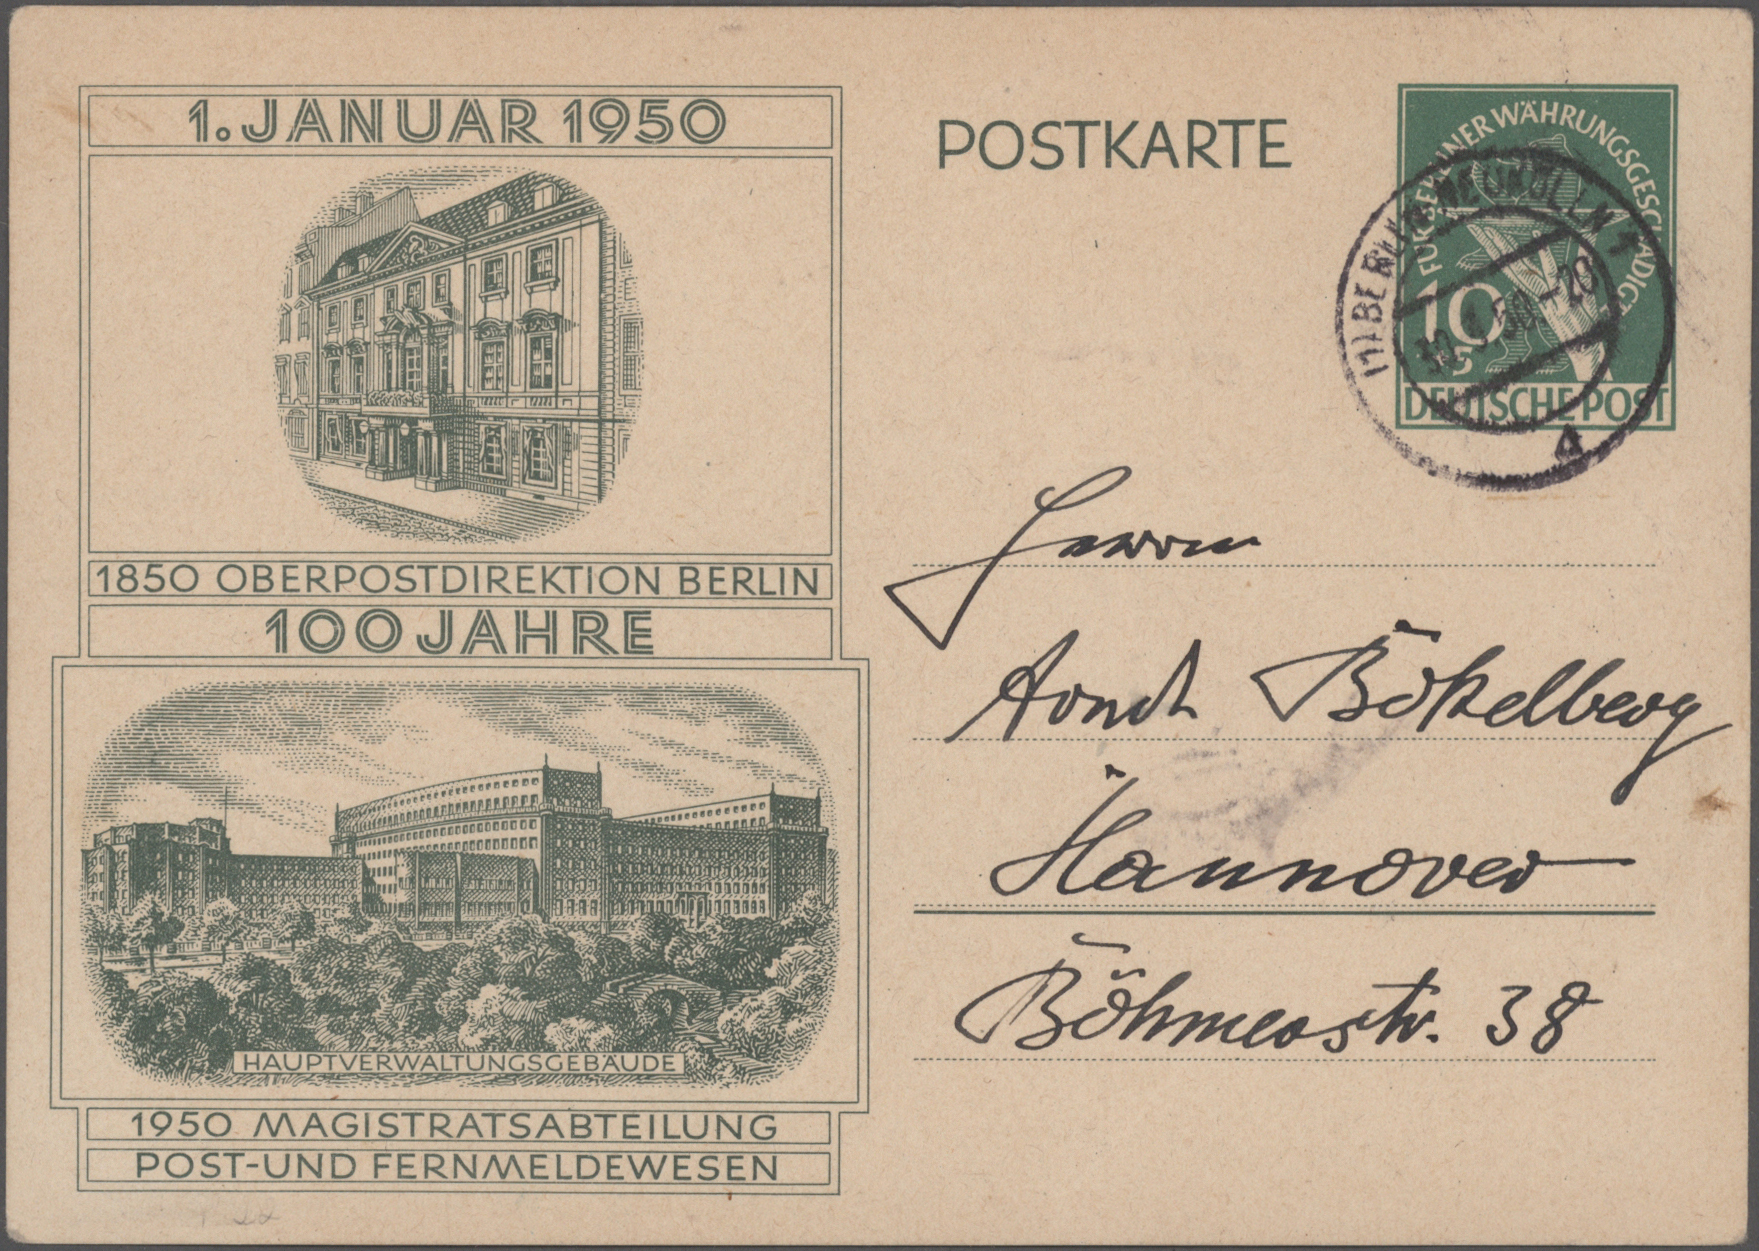 1. JANUAR 1950
1850 OBERPOSTDIREKTION BERLIN
100 JAHRE
HAUPTVERWALTUNGSGEBÄUDE
1950 MAGISTRATSABTEILUNG
POST-UND FERNMELDEWESEN
POSTKARTE
FÜR BERLINER WÄHRUNGSGESCHÄDIGTE
10
DEUTSCHE POST
BERLIN-NEUKÖLLN 1
50.-20
Herrn
Arndt Bökelberg
Hannover
Böhmerstr. 38